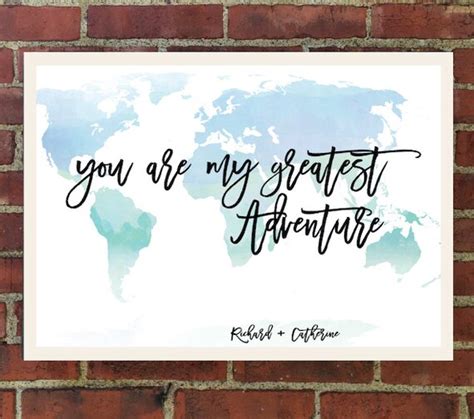 you are my greatest
Adventure
Richard + Catherine